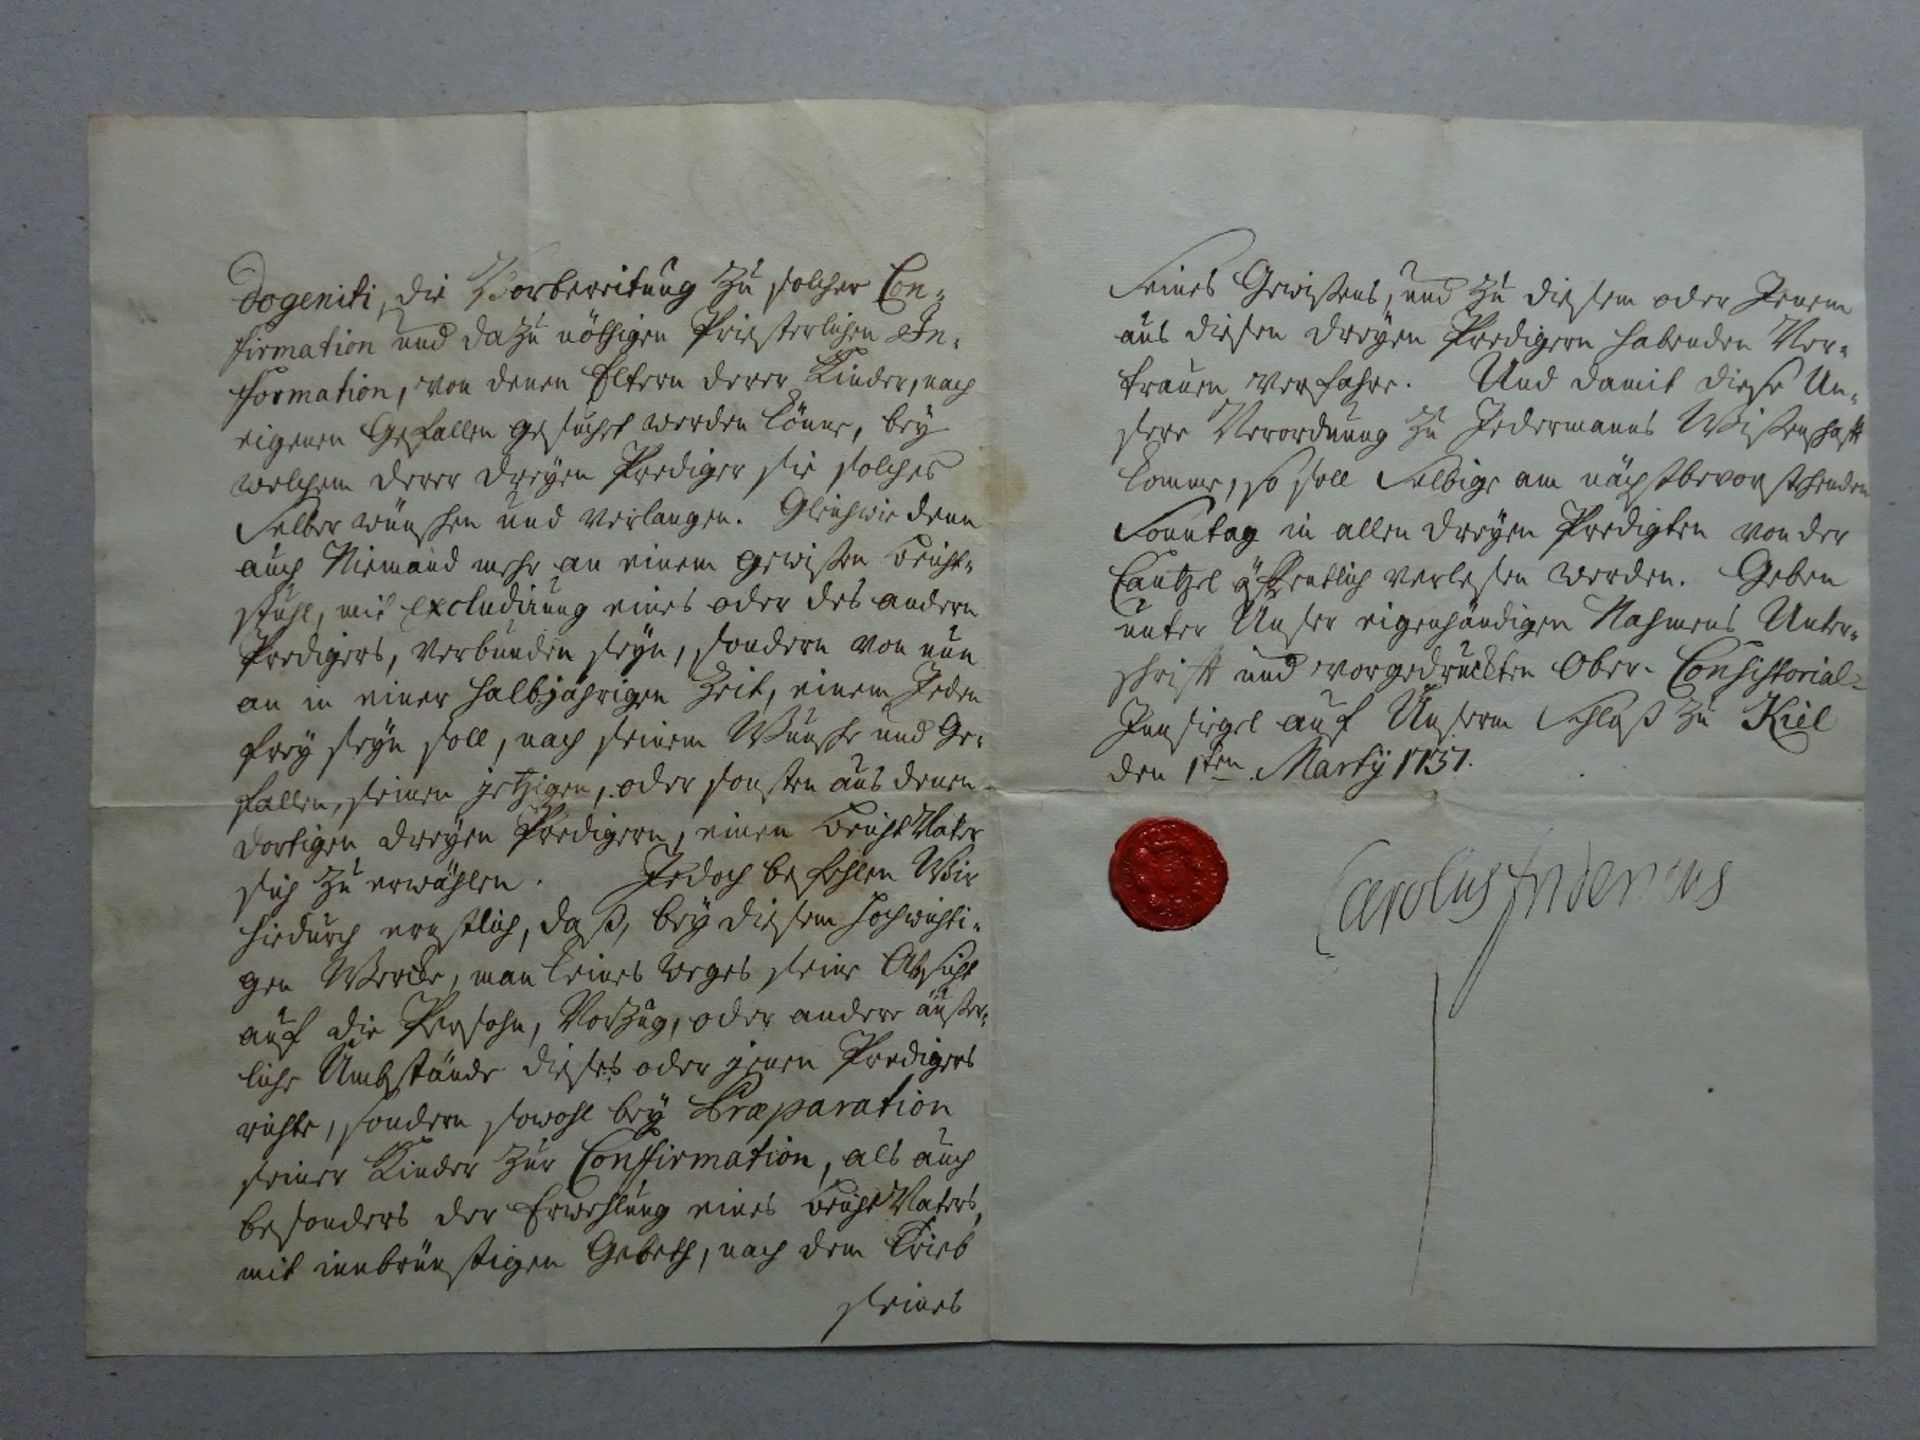 dogeniti, die Vorbereitung zu solcher Con-
firmation und dazu nöthigen Priesterlichen In-
formation, von denen Eltern derer Kinder, nach
eigenen Gefallen gesuchet werden könne, bey
welchem derer dreyen Prediger sie solches
Selber wünschen und verlangen. Gleichwie denn
auch Niemand mehr an einem gewißen Beicht-
stuhl, mit excludirung eines oder des andern
Predigers, verbunden seyn, sondern von nun
an in einer halbjährigen Zeit, einem Jeden
frey seyn soll, nach seinem Wunsche und Ge-
fallen, seinen jetzigen, oder sonsten aus denen
dortigen dreyen Predigern, einen BeichtVater
sich zu erwählen. Jedoch befehlen Wir
hiedurch ernstlich, daß, bey diesem hochwichti-
gen Wercke, man keines weges seine Absicht
auf die Persohn, Vorzug, oder andere äußer-
liche Umbstände dieses oder jenen Predigers
richte, sondern sowohl bey Præparation
seiner Kinder zur Confirmation, als auch
besonders der Erwehlung eines BeichtVaters,
mit innbrünstigen Gebeth, nach dem Trieb
seines
Seines Gewißens, und zu diesem oder Jenem
aus diesen dreyen Predigern habenden Ver-
trauen verfahre. Und damit diese Un-
sere Verordnung zu Jedermanns Wißenschafft
komme, so soll Selbige am nächstbevorstehenden
Sonntag in allen dreyen Predigten von der
Cantzel öffentlich verlesen werden. Geben
unter Unser eigenhändigen Nahmens Unter-
schrifft und vorgedruckten Ober-Consistorial-
Innsiegel auf Unserm Schloß zu Kiel
den 1ten Martij 1737.
Carolus Fridericus